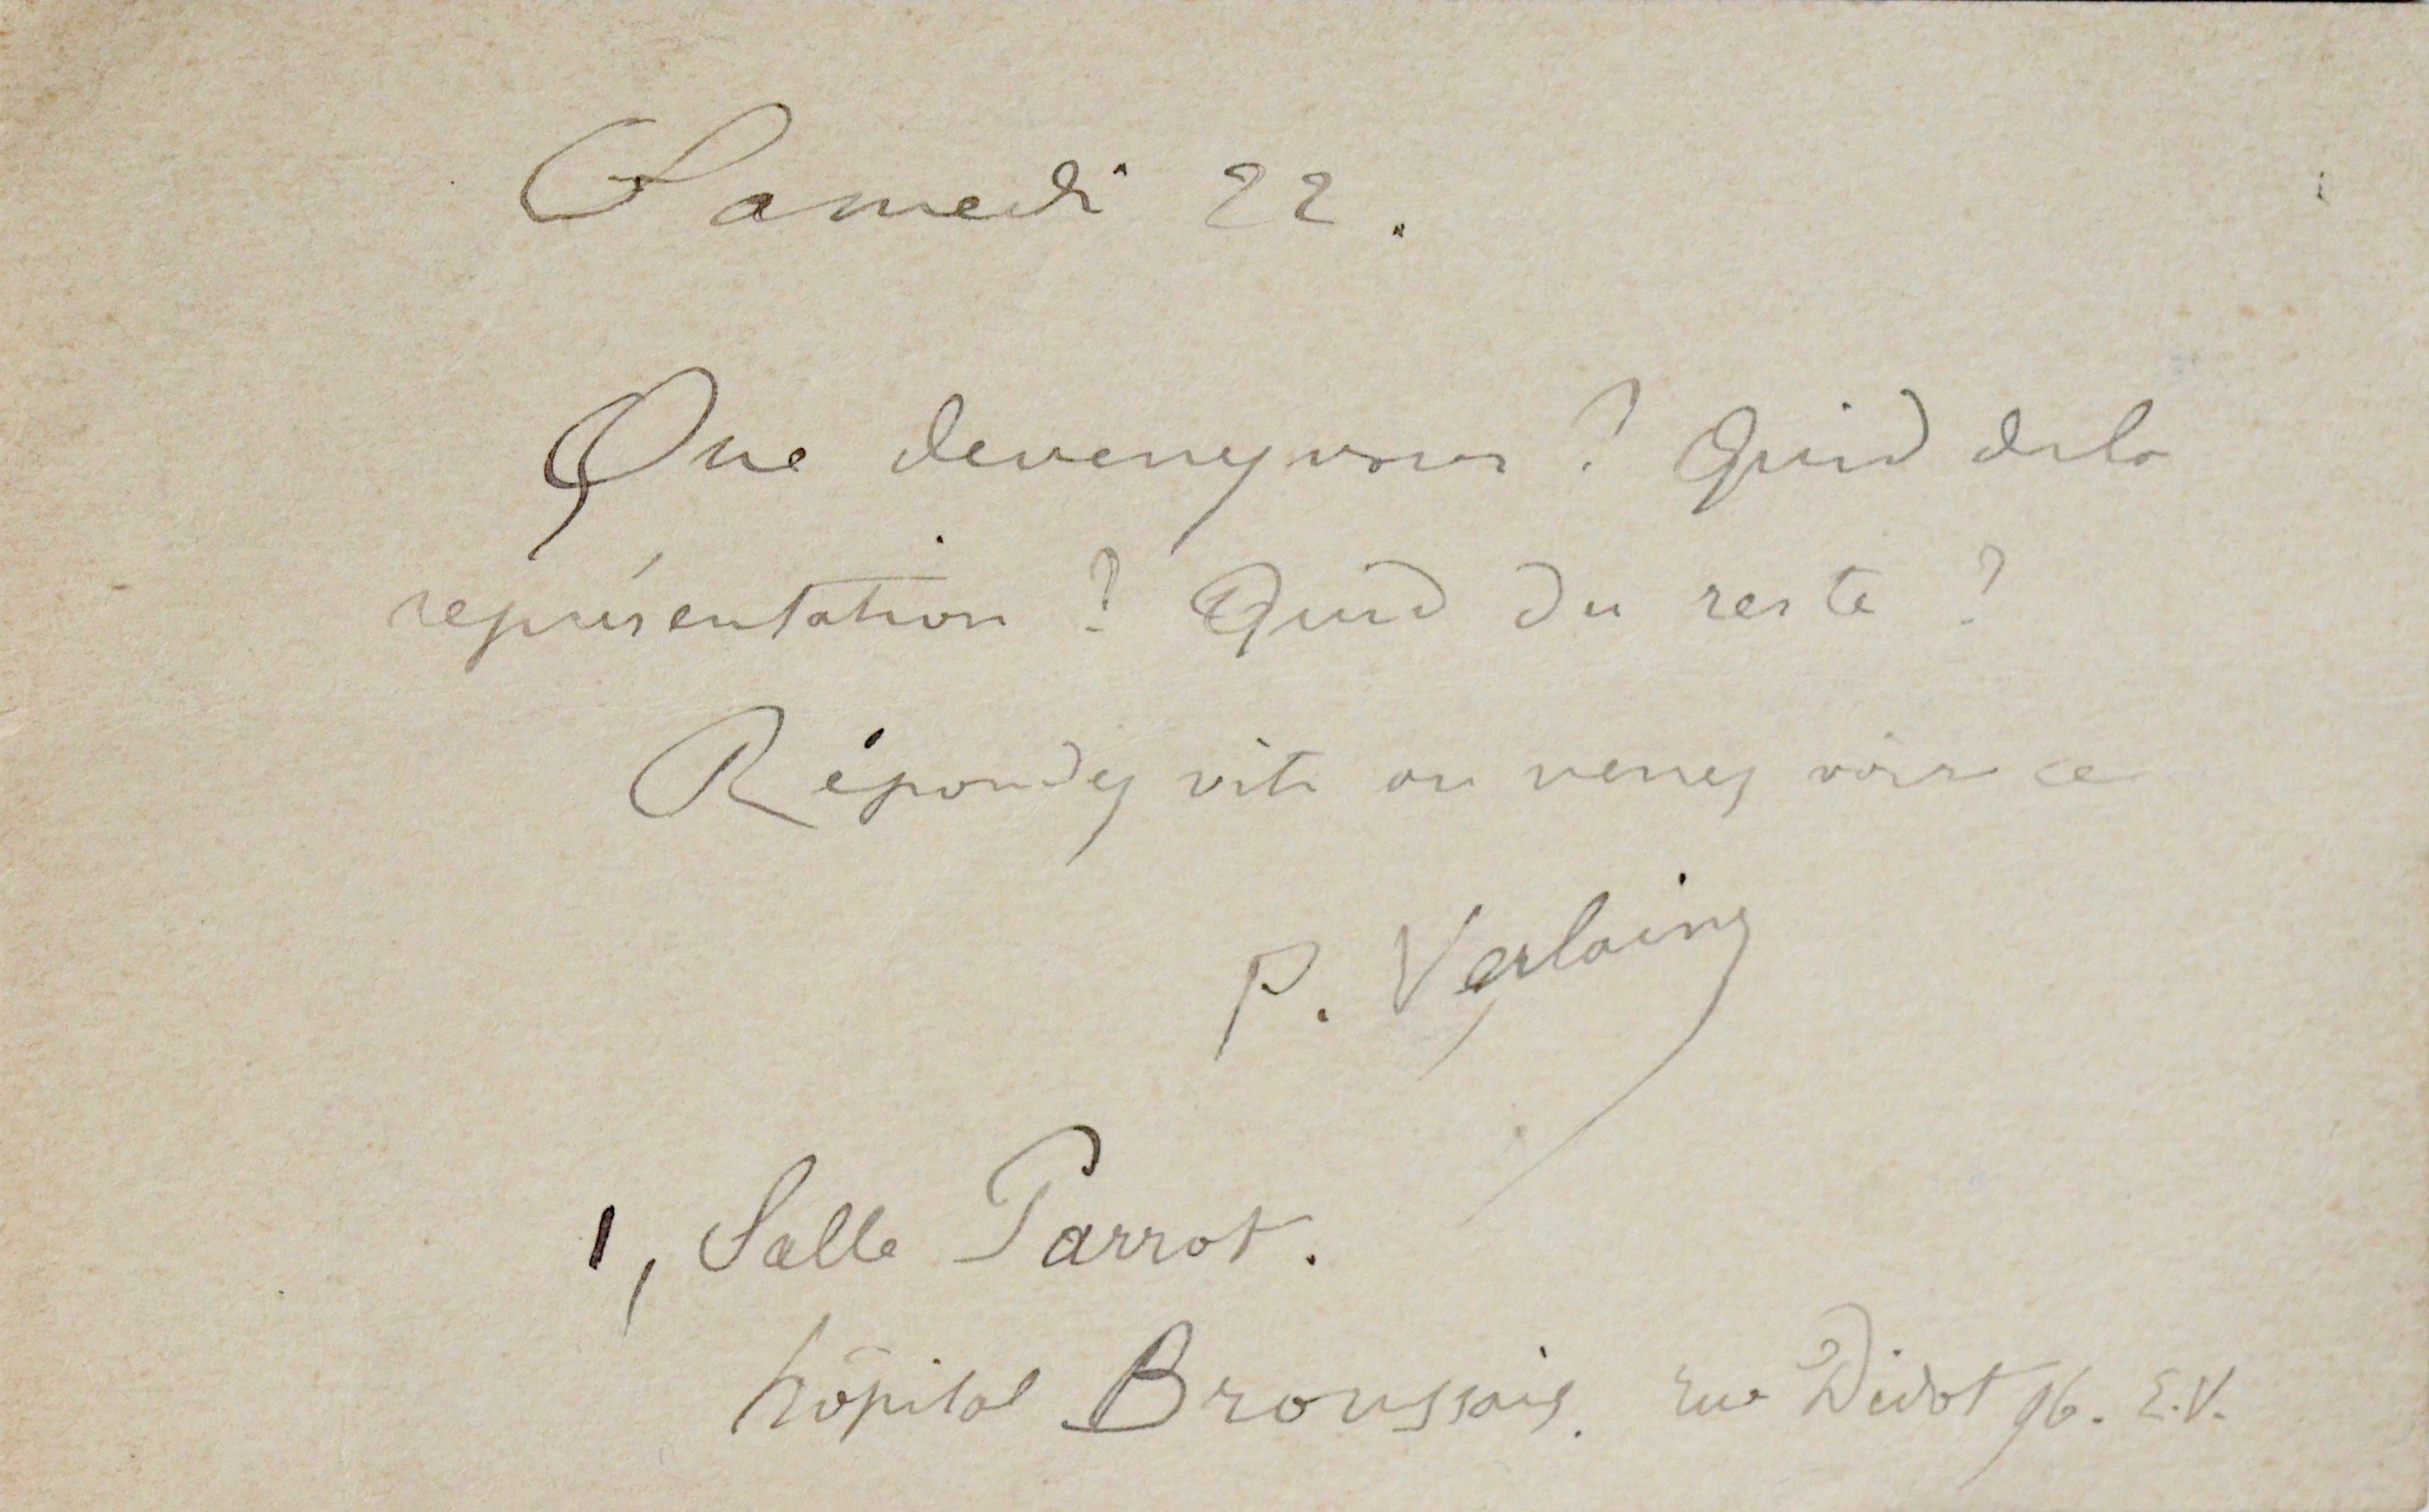 Samedi 22.
Que devenez vous ? Quid de la
représentation ? Quid du reste ?
Répondez vite ou venez voir ce
P. Verlaine
1, Salle Parrot.
hôpital Broussais. rue Didot 96. E.V.